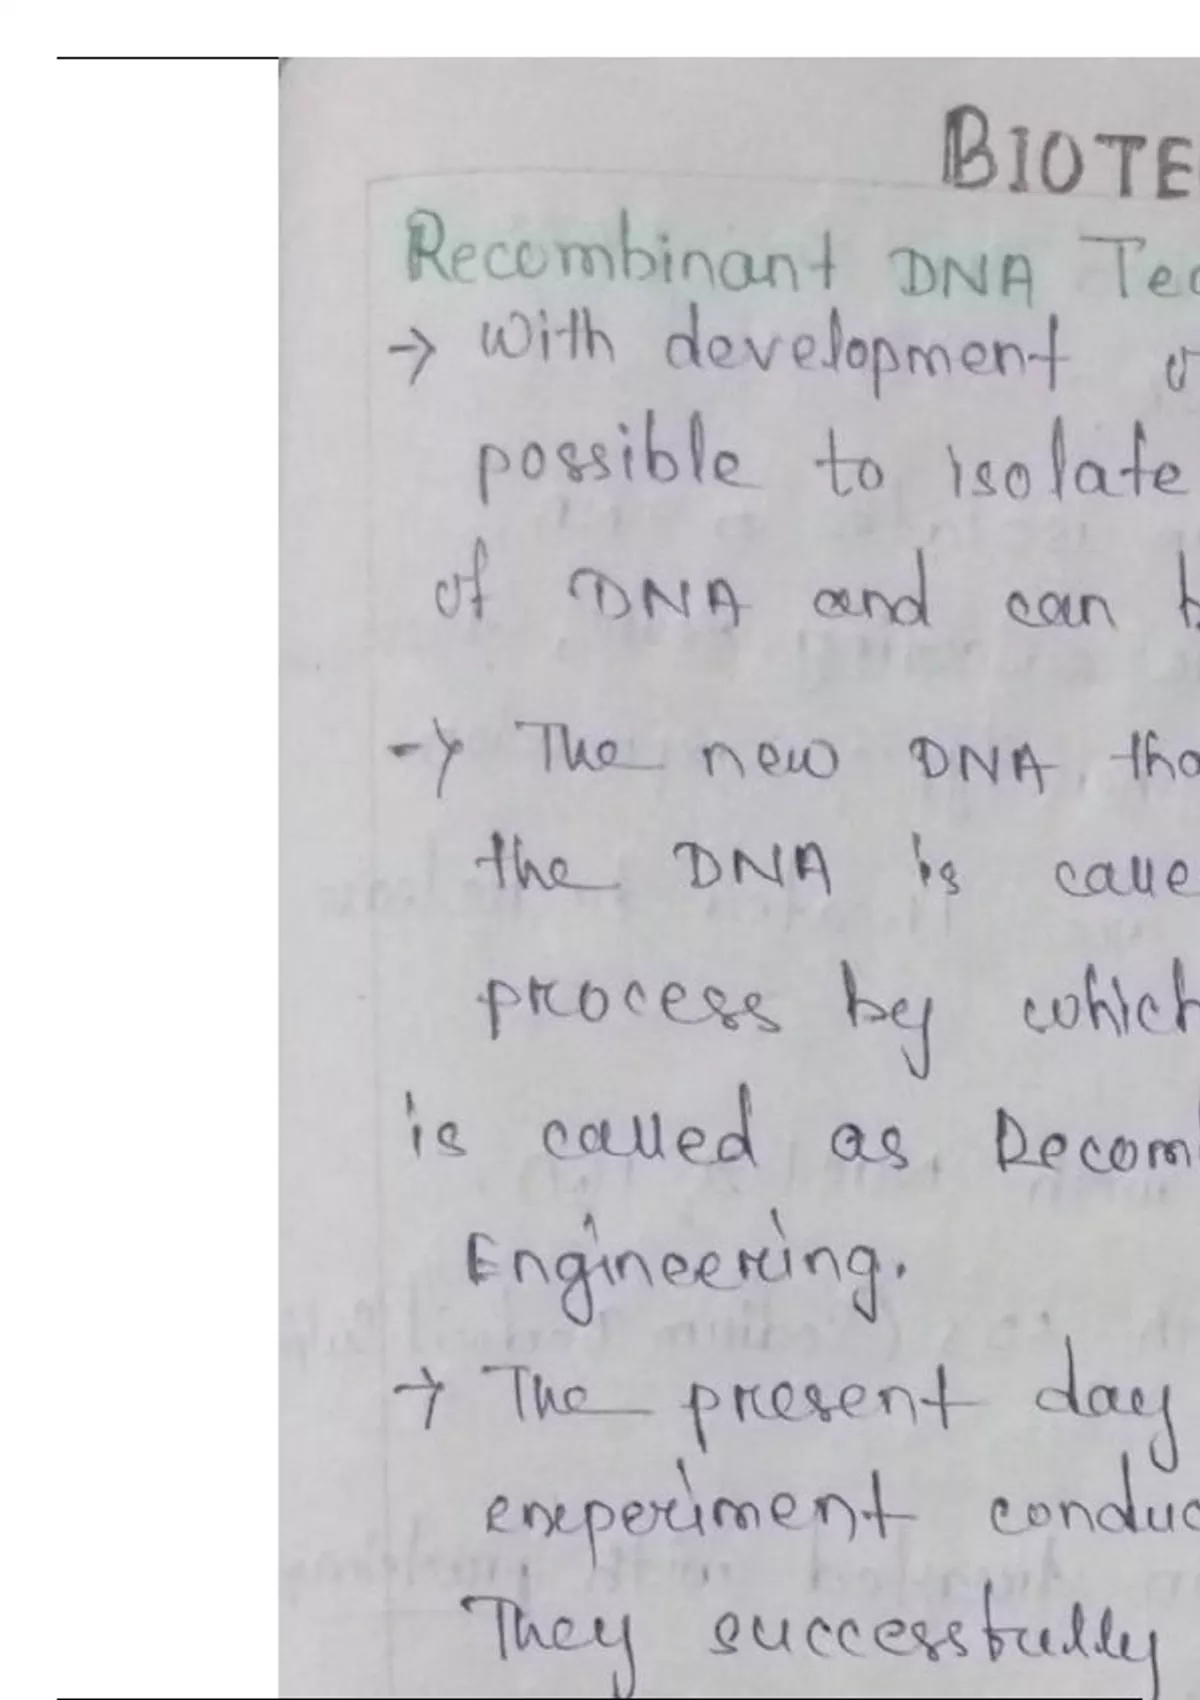 BIOTE
Recombinant DNA Tec
→ With development of
possible to isolate
of DNA and can b
→ The new DNA tha
the DNA is calle
process by which
is called as Recomb
Engineering.
→ The present day
experiment conduc
They successfully